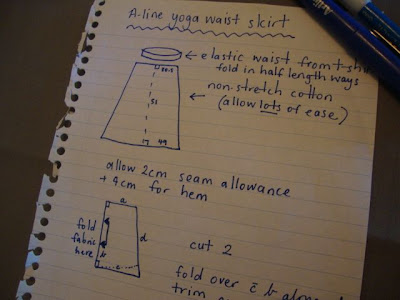 A-line yoga waist skirt
elastic waist from t-sh
fold in half length ways
non-stretch cotton
(allow lots of ease)
53
49
allow 2cm seam allowance
+ 4cm for hem
a
fold
fabric
here
b
d
c
cut 2
fold over
trim